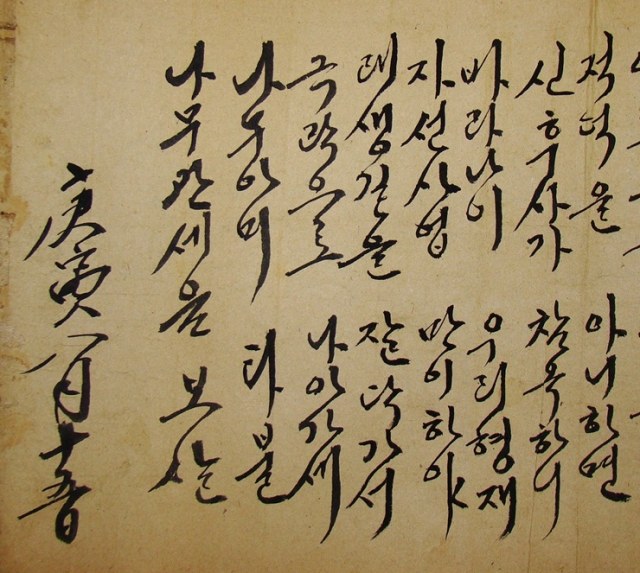 적덕을 아니하면
신후사가 참혹하니
바라나이 우리형재
자선사업 만이하야
래생길을 잘닥가서
극락으로 나아가세
나무아미 타불
나무관세음 보살
庚寅八月十五日